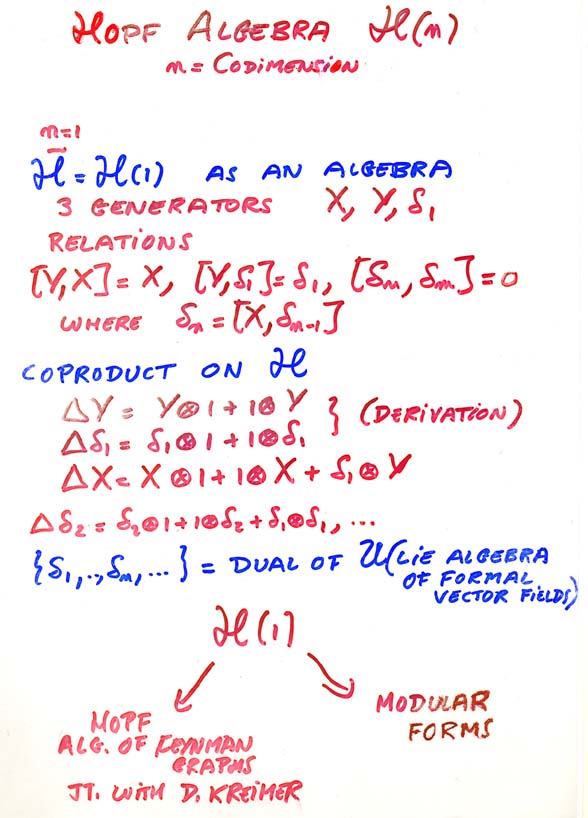 HOPF ALGEBRA ℋ(n)
n = CODIMENSION
n=1
ℋ = ℋ(1) AS AN ALGEBRA
3 GENERATORS X, Y, δ₁
RELATIONS
[Y,X] = X, [Y,δ₁] = δ₁, [δₙ, δₘ] = 0
WHERE δₙ = [X, δₙ₋₁]
COPRODUCT ON ℋ
ΔY = Y⊗1 + 1⊗Y } (DERIVATION)
Δδ₁ = δ₁⊗1 + 1⊗δ₁
ΔX = X⊗1 + 1⊗X + δ₁⊗Y
Δδ₂ = δ₂⊗1 + 1⊗δ₂ + δ₁⊗δ₁, ...
{δ₁,.., δₙ, ...} = DUAL OF U(LIE ALGEBRA
OF FORMAL
VECTOR FIELDS)
ℋ(1)
HOPF
ALG. OF FEYNMAN
GRAPHS
JT. WITH D. KREIMER
MODULAR
FORMS